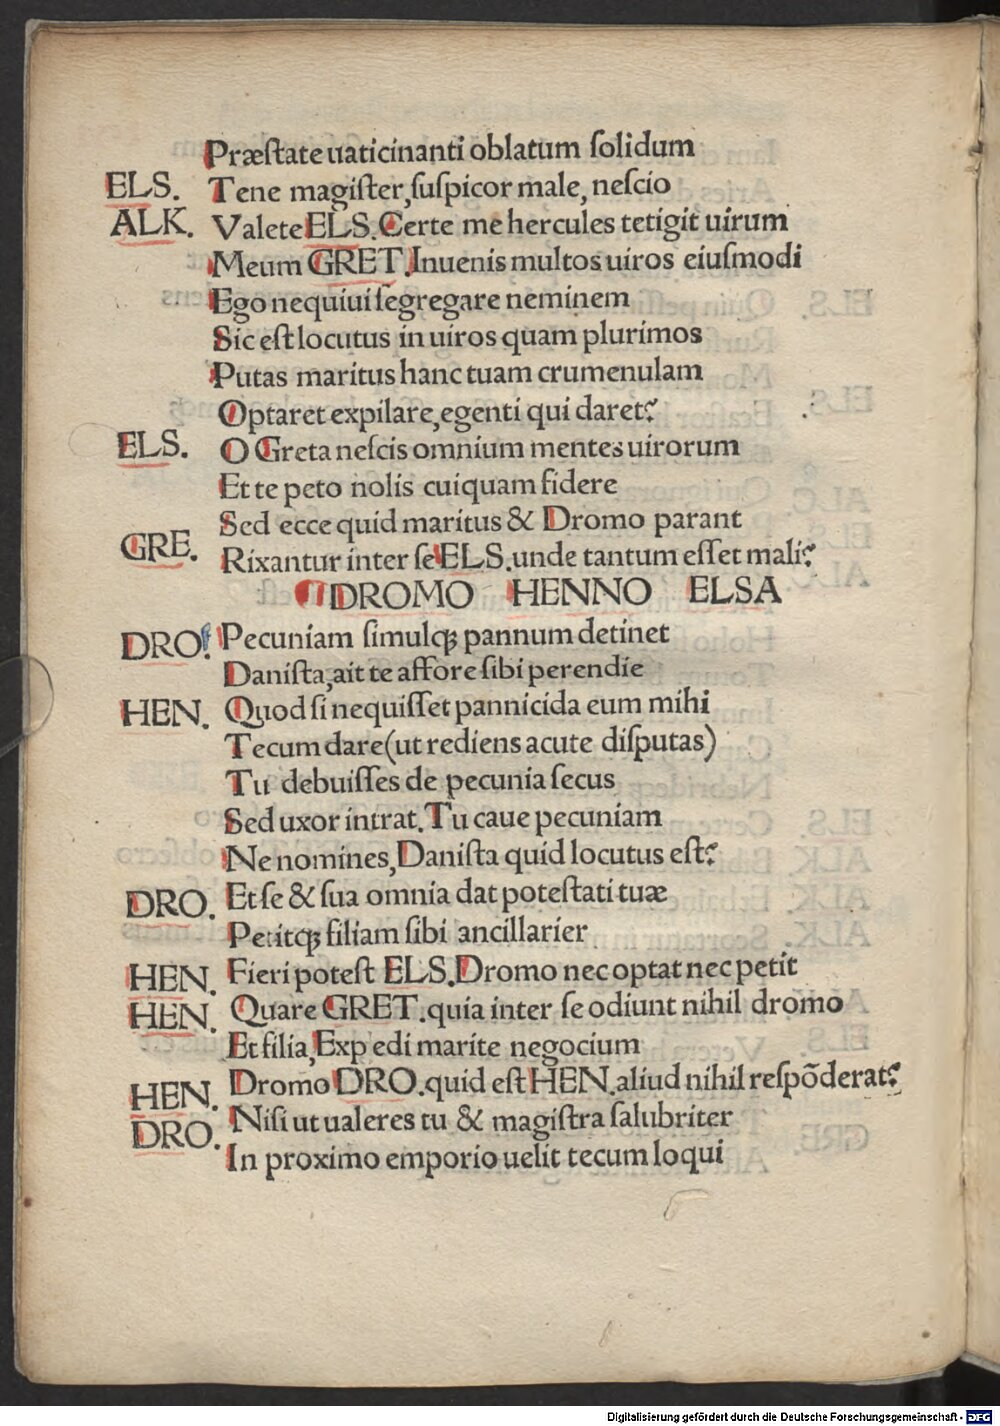 Præſtate uaticinanti oblatum ſolidum
ELS. Tene magiſter, ſuſpicor male, neſcio
ALK. Valete ELS. Certe me hercules tetigit uirum
Meum GRET. Inuenis multos uiros eiuſmodi
Ego nequiui ſegregare neminem
Sic eſt locutus in uiros quam plurimos
Putas maritus hanc tuam crumenulam
Optaret expilare, egenti qui daret?
ELS. O Greta neſcis omnium mentes uirorum
Et te peto nolis cuiquam fidere
Sed ecce quid maritus & Dromo parant
GRE. Rixantur inter ſe ELS. unde tantum eſſet mali?
¶ DROMO HENNO ELSA
DRO. Pecuniam ſimulqꝫ pannum detinet
Daniſta, ait te affore ſibi perendie
HEN. Quod ſi nequiſſet pannicida eum mihi
Tecum dare (ut rediens acute diſputas)
Tu debuiſſes de pecunia ſecus
Sed uxor intrat. Tu caue pecuniam
Ne nomines, Daniſta quid locutus eſt?
DRO. Et ſe & ſua omnia dat poteſtati tuæ
Petitqꝫ filiam ſibi ancillarier
HEN. Fieri poteſt ELS. Dromo nec optat nec petit
HEN. Quare GRET. quia inter ſe odiunt nihil dromo
Et filia, Expedi marite negocium
HEN. Dromo DRO. quid eſt HEN. aliud nihil reſpõderat?
DRO. Niſi ut ualeres tu & magiſtra ſalubriter
In proximo emporio uelit tecum loqui
Digitalisierung gefördert durch die Deutsche Forschungsgemeinschaft - DFG